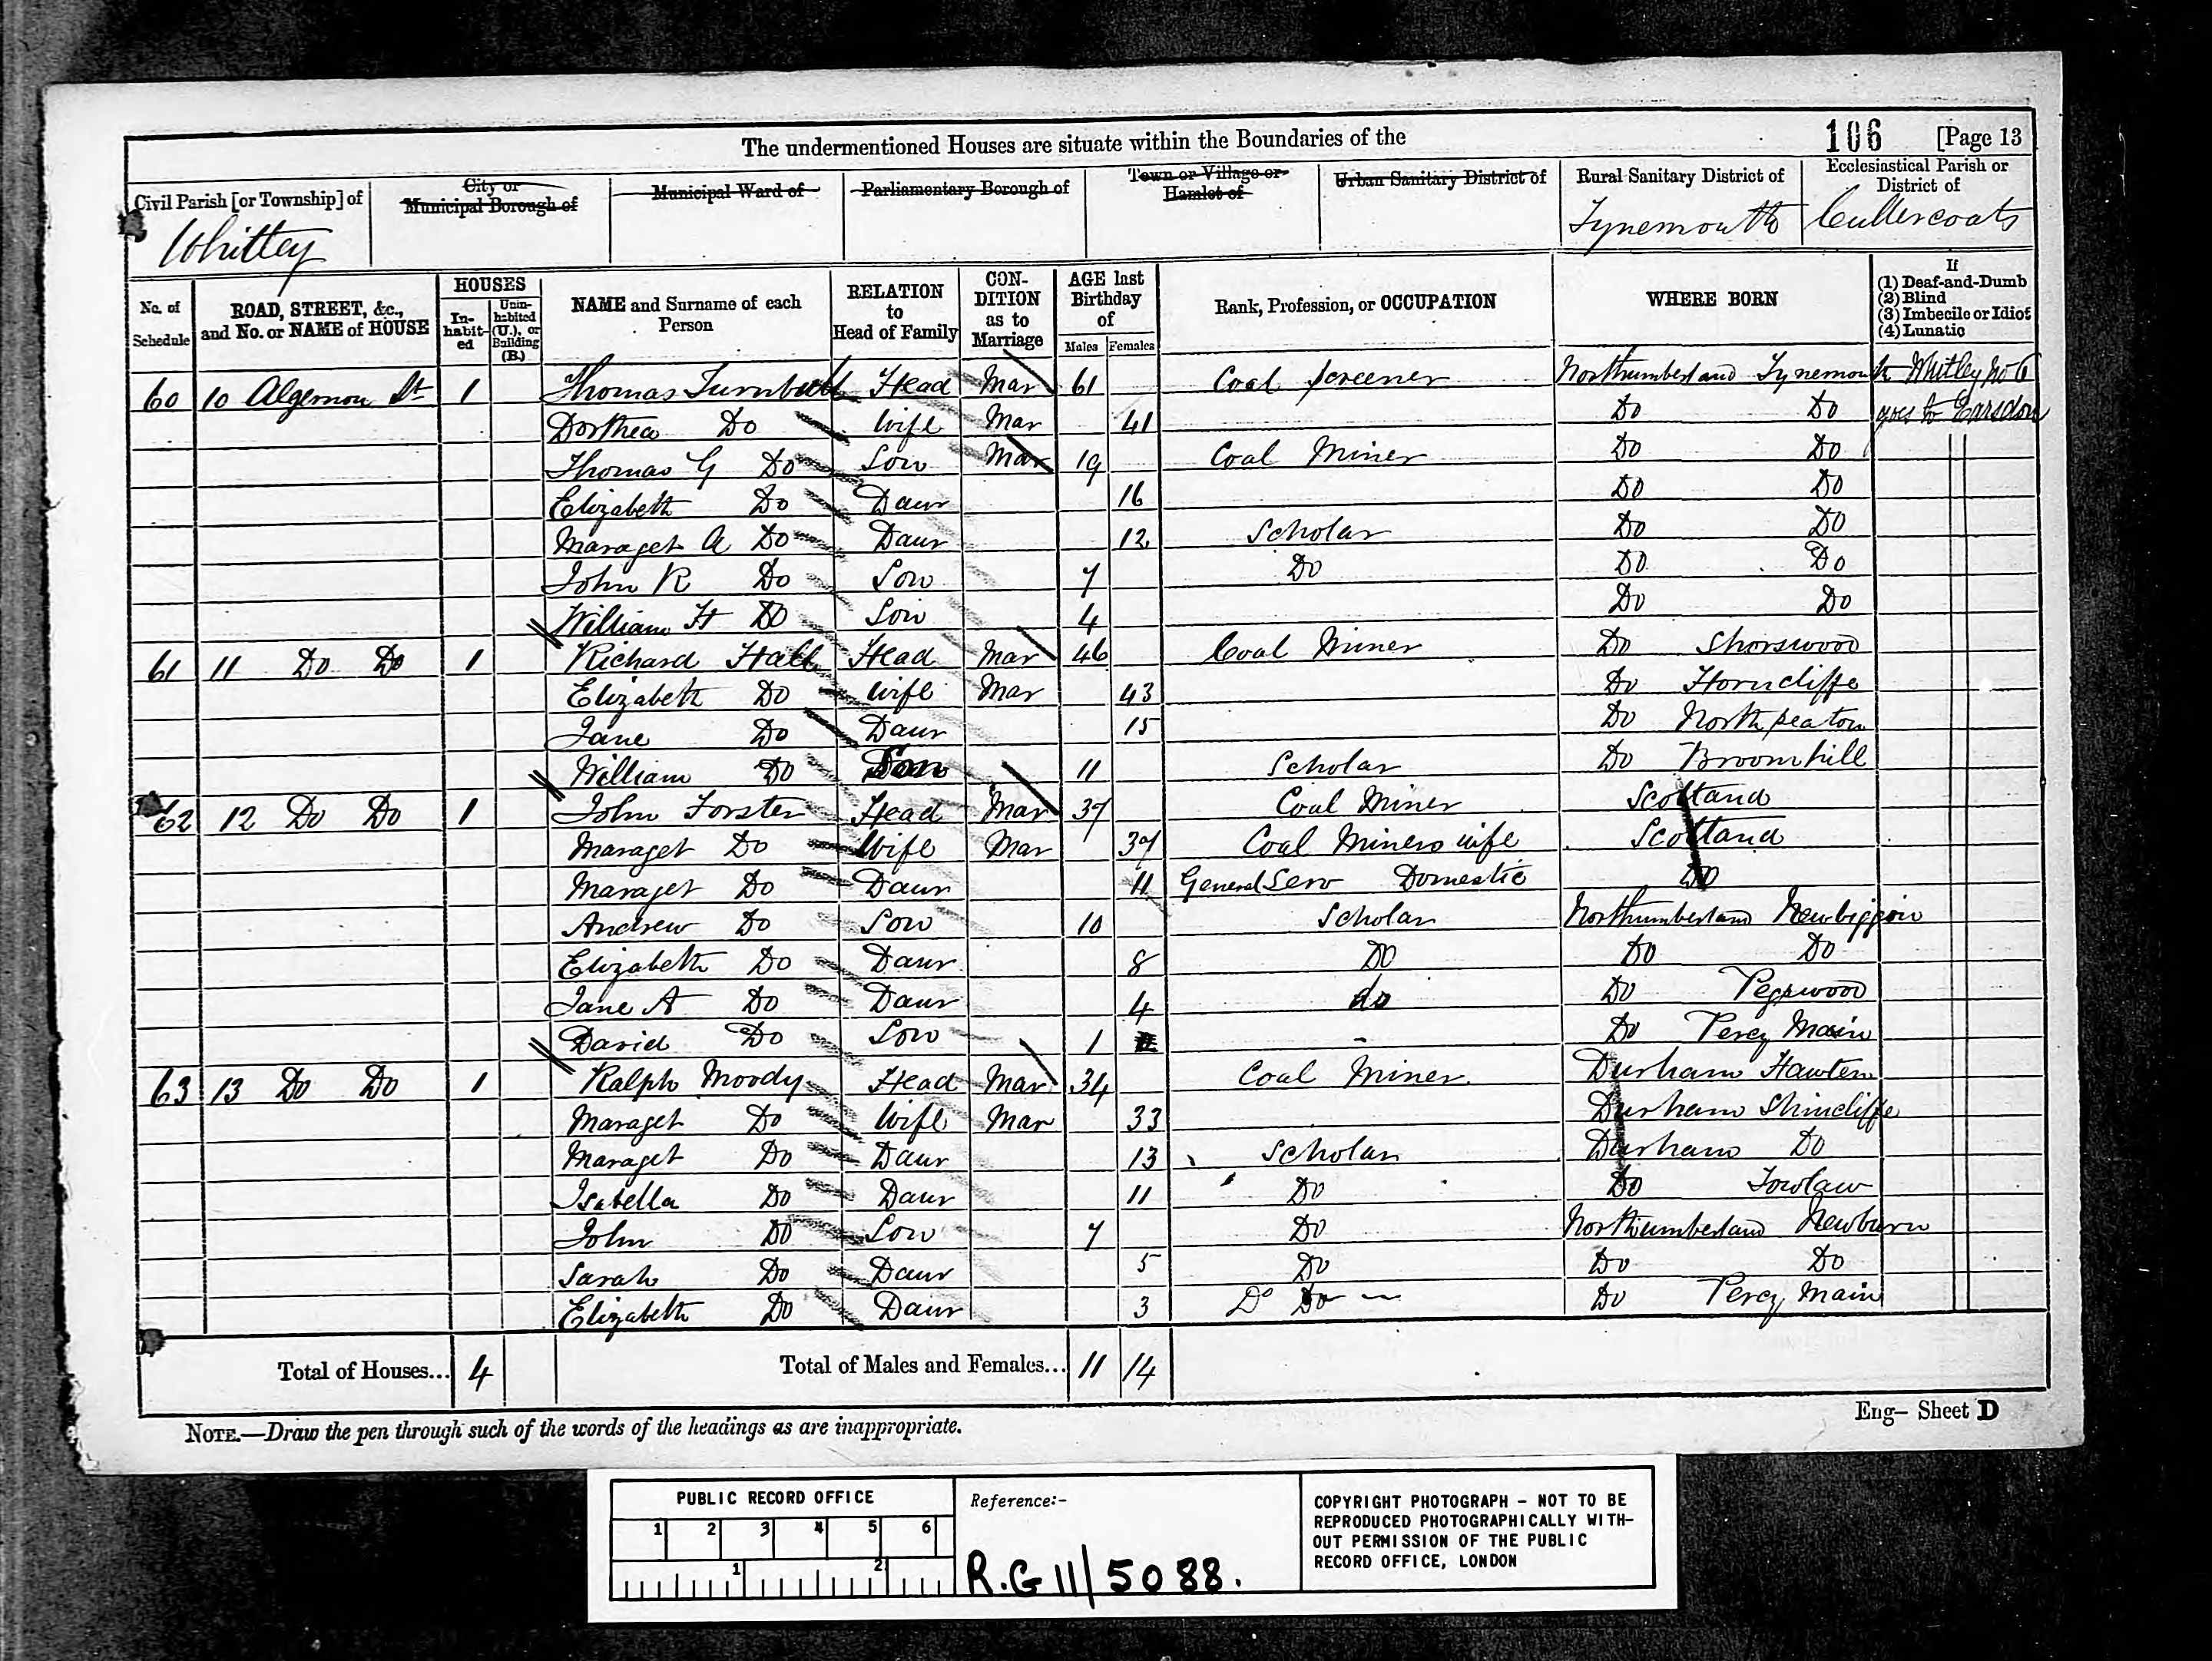 The undermentioned Houses are situate within the Boundaries of the 106 [Page 13
Civil Parish [or Township] of City or Municipal Borough of Municipal Ward of Parliamentary Borough of Town or Village or Hamlet of Urban Sanitary District of Rural Sanitary District of Ecclesiastical Parish or District of
Whitley Tynemouth Cullercoats
No. of Schedule ROAD, STREET, &c., and No. or NAME of HOUSE HOUSES In-habit-ed Unin-habited (U.), or Building (B.) NAME and Surname of each Person RELATION to Head of Family CON-DITION as to Marriage AGE last Birthday of Males Females Rank, Profession, or OCCUPATION WHERE BORN If (1) Deaf-and-Dumb (2) Blind (3) Imbecile or Idiot (4) Lunatic
60 10 Algernon St 1 Thomas Turnbull Head Mar 61 Coal Screener Northumberland Tynemouth Whitley No 6
Dorthea Do Wife Mar 41 Do Do goes to Earsdon
Thomas G Do Son Mar 19 Coal Miner Do Do
Elizabeth Do Daur 16 Do Do
Maraget A Do Daur 12 Scholar Do Do
John R Do Son 7 Do Do Do
William H Do Son 4 Do Do
61 11 Do Do 1 Richard Hall Head Mar 46 Coal Miner Do Shorswood
Elizabeth Do Wife Mar 43 Do Horncliffe
Jane Do Daur 15 Do North Seaton
William Do Son 11 Scholar Do Broomhill
62 12 Do Do 1 John Forster Head Mar 37 Coal Miner Scotland
Maraget Do Wife Mar 37 Coal Miners wife Scotland
Maraget Do Daur 11 General Serv Domestic Do
Andrew Do Son 10 Scholar Northumberland Newbiggin
Elizabeth Do Daur 8 Do Do Do
Jane A Do Daur 4 do Do Pegswood
David Do Son 1 - Do Percy Main
63 13 Do Do 1 Ralph Moody Head Mar 34 Coal Miner Durham Hawten
Maraget Do Wife Mar 33 Durham Shincliffe
Maraget Do Daur 13 Scholar Durham Do
Isabella Do Daur 11 Do Do Towlaw
John Do Son 7 Do Northumberland Newburn
Sarah Do Daur 5 Do Do Do
Elizabeth Do Daur 3 Do Do Do Percy Main
Total of Houses... 4 Total of Males and Females... 11 14
NOTE.—Draw the pen through such of the words of the headings as are inappropriate.
Eng- Sheet D
PUBLIC RECORD OFFICE
1 2 3 4 5 6
1 2
Reference:-
R.G 11/5088.
COPYRIGHT PHOTOGRAPH - NOT TO BE
REPRODUCED PHOTOGRAPHICALLY WITH-
OUT PERMISSION OF THE PUBLIC
RECORD OFFICE, LONDON